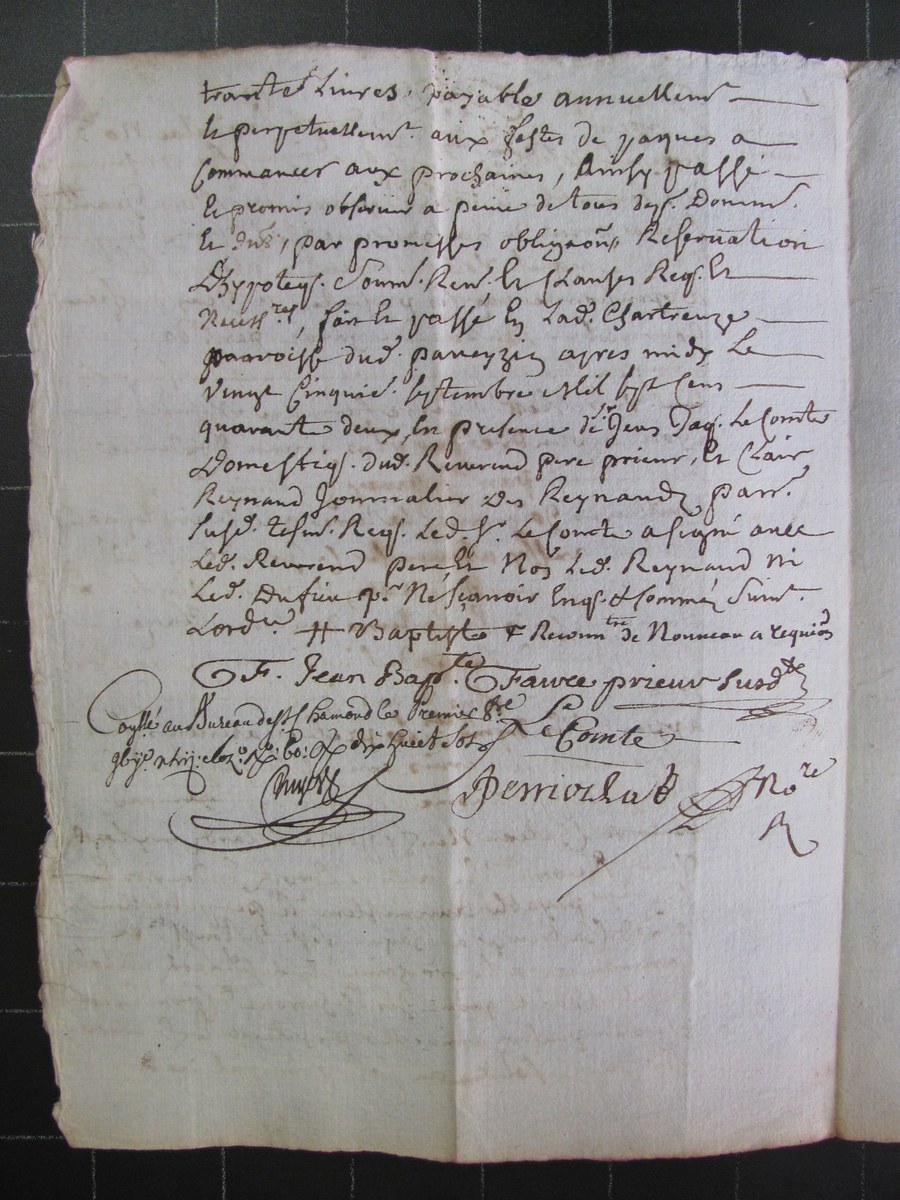 trante Livres, payable annuellemt
Et perpetuellemt. aux festes de paques a
Commancer aux prochaines, Ainsy passé
Et promis observer a peine de tous desp. Domm.
Et Ints, par promesses obligaons, Reservation
D'hypoteqs. Soum. Ren. Et Clauses Reqs. Et
Necessres, fait Et passé En lad. Chartreuze
parroisse dud. paveyzin apres midy Le
Vingt Cinquie. septembre Mil sept Cens
quarante deux, En presence de sr Jean Jaq. Le Comte
Domestiq. dud. Reverend pere prieur, Et Clair
Reynaud Journalier Des Reynauds parr.
susd. tesm. Reqs. Led. Sr. Le Comte a signé avec
Led. Reverend pere Et Non Led. Reynaud ni
Led. Dufieu pr. Ne sçavoir Enqs. & sommés suivt.
Lordce # Baptiste & Reconntre de Nouveau a requis
F. Jean Bapte. Faure prieur susdt
au Bureau de St Chamond le Premier 8bre
Le Comte
dix huit sols
Nore
R